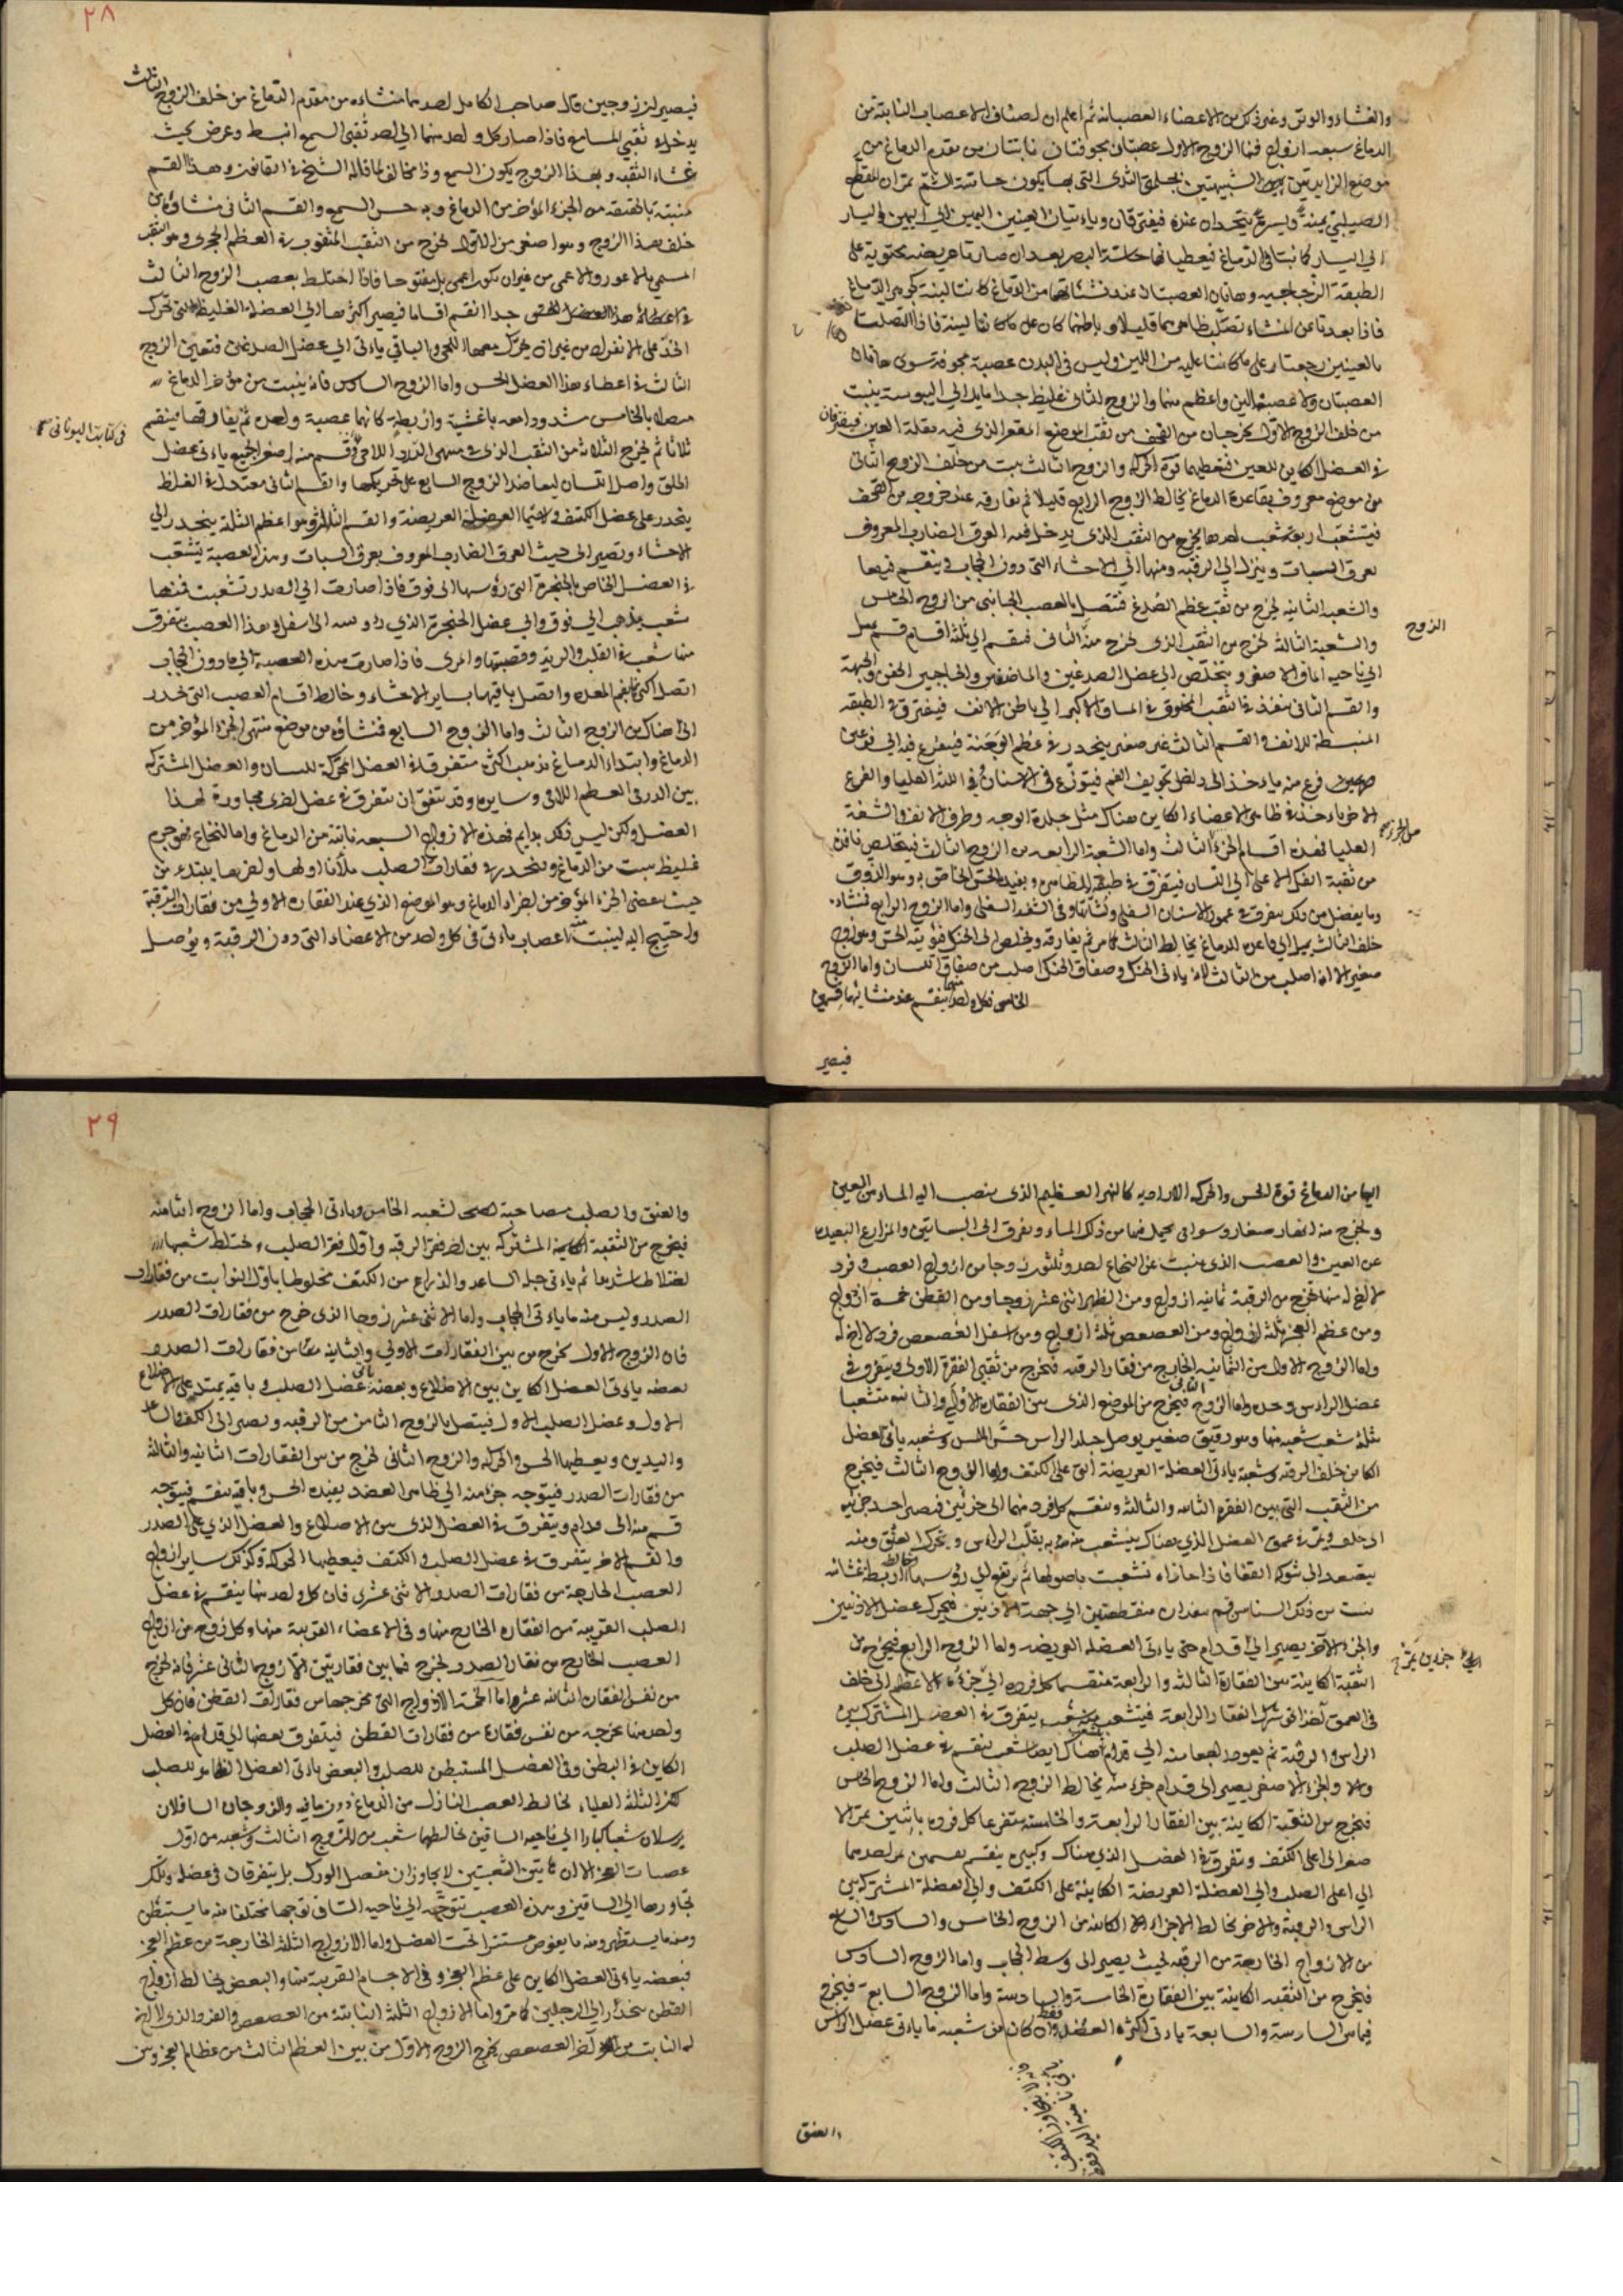 والغشاء والوتر وغير ذلك من الاعضاء العصبانية ثم اعلم ان اصناف الاعصاب النابتة من
الدماغ سبعة ازواج فما الزوج الاول عصبتان مجوفتان نابتتان من مقدم الدماغ من
موضع الزايدتين الشبيهتين بحلمتى الثدى التى بها يكون حاسة الشم تمران
الصليبى يمنة ويسرة يتحدان عنده فيفترقان وياءتيان العينين اليمين الى اليمين واليسار
الى اليسار كما نبتا فى الدماغ فيعطيانها حاسة البصر بعد ان صارتا عريضه محتوية على
الطبقة الزجاجيه وهاتان العصبتان عند نشئاتهما من الدماغ كانتا لينة كجوهر الدماغ
فاذا بعدتا عن المنشاء تصلب ظاهرهما قليلا وباطنهما كان على ما كانتا لينة فاذا اتصلتا
بالعينين رجعتا على ما كانتا عليه من اللين وليس فى البدن عصبة مجوفة سوى هاتان
العصبتان ولا عصبة الين واعظم منهما والزوج الثانى غليظ جدا مايل الى اليبوسة ينبت
من خلف الزوج الاول يخرجان من القحف من ثقب الموضع المقعر الذى فيه مقلة العين فيفترقان
فى العضل الكاين للعين فتعطيهما قوة الحركة والزوج الثالث ينبت من خلف الزوج الثانى
من موضع معروف بقاعدة الدماغ يخالط الزوج الرابع قليلا ثم تفارقه عند خروجه من القحف
فيتشعب اربعة شعب احدها يخرج من الثقب الذى يدخل فيه العرق الضارب المعروف
بعرق السبات وينزل الى الرقبه ومنها الى الاحشاء التى دون الحجاب فينقسم فيها
والشعبة الثانيه يخرج من ثقب عظم الصدغ فتتصل بالعصب الجانبى من الزوج الخامس
والشعبة الثالثة تخرج من الثقب الذى تخرج منه الثانى فينقسم الى ثلثة اقسام قسم يميل
الزوج
الى ناحيه الماق الاصغر ويتخلص الى عضل الصدغين والماضغين والحاجبين الجفن والجبهة
والقسم الثانى ينفذ فى الثقب المخلوق فى الماق الاكبر الى باطن الانف فيفترق فى الطبقه
المنبسطة للانف والقسم الثالث غير صغير ينحدر فى عظم الوجنة فيتفرع فيه الى فرعين
فرع منه ياءخذ الى داخل تجويف الفم فيتوزع فى الاسنان فى اللثة العليا والفرع
الاخر ياءخذ فى ظاهر الاعضاء الكاين هناك مثل جلدة الوجه وطرف الانف والشفة
العليا فهذه اقسام الجزء الثالث واما الشعبة الرابعة من الزوج الثالث فيتخلص نافذة
من ثقبة الفك الاعلى الى اللسان فيتفرق فى طبقته الظاهرة ويفيد الحس الخاص به وهو الذوق
وما يفضل من ذلك يتفرق فى عمور الاسنان السفلى ولثاتها وفى الشفة السفلى واما الزوج الرابع فمنشاءه
خلف الثالث يميل الى قاعدة الدماغ يخالط الثالث كما مر ثم يفارقه ويخلص الى الحنك فيؤتيه الحس وهو زوج
صغير الا انه اصلب من الثالث لانه ياءتى الحنك وصفاق الحنك اصلب من صفاق اللسان واما الزوج
الخامس فكل واحد منها ينقسم عند منشائيهما قسمين
فيصير
٢٨
فيصير لزوجين قال صاحب الكامل احدهما منشاءه من مقدم الدماغ من خلف الزوج الثالث
يدخل فى ثقبى المسامع فاذا صار كل واحد منهما الى احد ثقبى السمع انبسط وعرض بحيث
غشاء الثقبه وبهذا الزوج يكون السمع وذا مخالف لما قاله الشيخ فى القانون وهذا القسم
منبته بالحقيقة من الجزء المؤخر من الدماغ وبه حس السمع والقسم الثانى منشاؤه من
خلف هذا الزوج وهو اصغر من الاول يخرج من الثقب المثقوب فى العظم الحجرى وهو الثقب
المسمى بالاعور والاعمى من غير ان يكون اعمى بل مفتوحا فاذا اختلط بعصب الزوج الثالث
جدا انقسم اقساما فيصير اكثرهما الى العضلة الغليظة التى تحرك
الخد على الانفراد من غير ان يحرك معها اللحى والباقى ياءتى الى عضل الصدغين فتعين الزوج
الثالث فى اعطاء هذا العضل الحس واما الزوج السادس فانه ينبت من مؤخر الدماغ
متصلا بالخامس مشدودا معه باغشية واربطة كانهما عصبة واحدة ثم يفارقها فينقسم
فى كتابت اليونانى
ثلاثا ثم يخرج الثلاثة من الثقب الذى فى منتهى الدرز اللامى قسم منه اصغر الجميع ياءتى عضل
الحلق واصل اللسان ليعاضد الزوج السابع على تحريكها والقسم الثانى معتدل فى الغلظ
ينحدر على عضل الكتف ولا سيما العضلة العريضة والقسم الثالث وهو اعظم الثلثة ينحدر الى
الاحشاء وتصير الى حيث العرق الضارب المعروف بعرق السبات وهذه العصبة يتشعب
فى العضل الخاص بالحنجرة التى رؤسها الى فوق فاذا صارت الى الصدر تشعبت فمنها
شعب يذهب الى فوق والى عضل الحنجرة الذى رؤسه الى اسفل وهذا العصب يتفرق
منها شعب فى القلب والرية وقصبتها والمرى فاذا صارت هذه العصبة الى ما دون الحجاب
اتصل اكثرها بفم المعدة واتصل باقيها بساير الاحشاء وخالط اقسام العصب التى تنحدر
الى هناك من الزوج الثالث واما الزوج السابع فمنشاؤه من موضع منتهى الجزء المؤخر من
الدماغ وابتداء الدماغ يذهب اكثره متفرقا فى العضل المحركة للسان والعضل المشتركه
بين الدرقى العظم اللامى وسايره وقد يتفق ان يتفرق فى عضل اخرى مجاورة لهذا
العضل ولكن ليس ذلك بدايم فهذه الازواج السبعه نابتة من الدماغ واما النخاع فهو جرم
غليظ ينبت من الدماغ وينحدر فى فقارات الصلب ملآنا اولها واخرها يبتدء من
حيث ينقضى الجزء المؤخر من اجزاء الدماغ وهو الموضع الذى عند الفقاره الاولى من فقارات الرقبة
واحتيج اليه لينبت منه اعصاب ياءتى فى كل واحد من الاعضاء التى دون الرقبة ويوصل
اليها من الدماغ قوة الحس والحركه الاراديه كالنهر العظيم الذى ينصب اليه الماء من العين
وتخرج منه انهار صغار وسواقى يحمل فيها من ذلك الماء ويفرق الى البساتين والمزارع البعيدة
عن العين والعصب الذى ينبت عن النخاع احد وثلثون زوجا من ازواج العصب وفرد
لا اخ له منها تخرج من الرقبة ثمانية ازواج ومن الظهر اثنى عشر زوجا ومن القطن خمسة ازواج
ومن عظم العجز ثلثة ازواج ومن العصعص ثلثة ازواج ومن اسفل العصعص فرد لا اخ له
واما الزوج الاول من الثمانيه الخارج من فقار الرقبه فتخرج من ثقبى الفقرة الاولى ويتفرق فى
عضل الراس وحده واما الزوج الثانى فيخرج من الموضع الذى بين الفقاره الاولى والثانيه متشعبا
ثلثة شعب شعبة منها وهو رقيق صغير يوصل جلد الراس حس اللمس وشعبه ياتى العضل
الكاين خلف الرقبه وشعبة ياءتى العضلة العريضة التى على الكتف واما الزوج الثالث فيخرج
من الثقب التى بين الفقره الثانيه والثالثه وينقسم كل فرد منهما الى جزئين فيصير احد جزئيه
الى خلف ويمر فى عمق العضل الذى هناك ينشعب منه ما به يقلب الراس ويحرك العنق ومنه
يتصعد الى شوك القفا فاذا حازاه تشعبت باصولها ثم يرتفع الى رؤسها يخالطه اربطة غشائيه
الى جهة الاذنين فيحرك عضل الاذنين
والجزء الآخر يصير الى قدام حتى ياءتى العضله العريضه واما الزوج الرابع فيخرج من
الثقبة الكاينة بين الفقارة الثالثه والرابعة منقسما كل فرد الى جزئين الاعظم الى خلف
يتفرق فى العضل المشترك بين
الراس والرقبة ثم يعود راجعا منه الى قدام هناك ايضا شعب ينقسم فى عضل الصلب
والجزء الاصغر يصير الى قدام جزء منه يخالط الزوج الثالث واما الزوج الخامس
فتخرج من الثقبة الكاينة بين الفقار الرابعة والخامسه متفرعا كل فرد باثنين يمر الا
صغر الى اعلى الكتف ويتفرق فى العضل الذى هناك وكبيره ينقسم بقسمين يمر احدهما
الى اعلى الصلب والى العضلة العريضة الكاينة على الكتف والى العضلة المشتركة بين
الراس والرقبة والاخر يخالط الاجزاء الكاينه من الزوج الخامس والسادس والسابع
من الازواج الخارجة من الرقبه بحيث يصير الى وسط الحجاب واما الزوج السادس
فيخرج من الثقبه الكاينة بين الفقارة الخامسة والسادسة واما الزوج السابعة فيخرج
فيما بين السادسة والسابعة ياءتى اكثره العضل فقط وان كان من شعبه ما ياءتى عضل الراس
والعنق
٢٩
والعنق والصلب مصاحبة لشعبه الخامس وياءتى الحجاب واما الزوج الثامنه
فيخرج من الثقبة الكاينة المشتركه بين اخر فقر الرقبه واول فقر الصلب ويختلط شعبها
اختلاطا شديدا ثم ياءتى جله الساعد والذراع من الكتف مخلوطا باول النوابت من فقارات
الصدر وليس منه ما ياءتى الحجاب واما الاثنى عشر زوجا الذى خرج من فقارات الصدر
فان الزوج الاول يخرج من بين الفقارات الاولى والثانية من فقارات الصدر
بعضه ياءتى العضل الكاين بين الاضلاع وبعضه ياتى عضل الصلب وباقيه يمتد على الاضلاع
الاول وعضل الصلب الاول فيتصل بالزوج الثامن من الرقبه ويصير الى الكف والساعد
واليدين ويعطيها الحس والحركه والزوج الثانى تخرج من بين الفقارات الثانيه والثالثة
من فقارات الصدر فيتوجه جزء منه الى ظاهر العضد يفيده الحس وباقيه ينقسم فيتوجه
قسم منه الى قدام ويتفرق فى العضل الذى بين الاضلاع والعضل الذى على الصدر
والقسم الاخر يتفرق فى عضل الصلب والكتف فيعطيها الحركة وكذلك ساير ازواج
العصب الخارجة من فقارات الصدر الاثنى عشرى فان كل واحد منها ينقسم فى عضل
الصلب القريبة من الفقاره الخارج منها وفى الاعضاء القريبة منها وكل زوج من ازواج
العصب الخارج من فقار الصدر تخرج فيما بين فقارتين الا زوجا الثانى عشر فانه يخرج
من نفس الفقاره الثانيه عشر واما الخمسة الازواج التى مخرجها من فقارات القطن فان كل
واحد منها مخرجه من نفس فقارة من فقارات القطن فيتفرق بعضها الى قدام فى العضل
الكاين فى البطن وفى العضل المستبطن للصلب والبعض ياءتى العضل الظاهر للصلب
لكن الثلثة العليا يخالط العصب النازل من الدماغ دون باقيه والزوجان السافلان
يرسلان شعبا كبارا الى ناحيه الساقين يخالطهما شعب من الزوج الثالث وشعبه من اول
عصبات العجز الا ان هاتين الشعبتين لا يجاوزان مفصل الورك بل يتفرقان فى عضله وتلك
تجاورها الى الساقين وهذه العصب تتوجه الى ناحيه الساق توجها مختلفا منه ما يستبطن
ومنه ما يستظهر ومنه ما يغوص مستترا تحت العضل واما الازواج الثلثة الخارجة من عظم العجز
فبعضه ياءتى العضل الكاين على عظم العجز وفى الاجسام القريبة منها والبعض يخالط ازواج
القطن منحدرا الى الرجلين كما مر واما الازواج الثلثة النابتة من العصعص والفرد الذى لا اخ
له النابت من آخر العصعص يخرج الزوج الاول من بين العظم الثالث من عظام العجز وبين